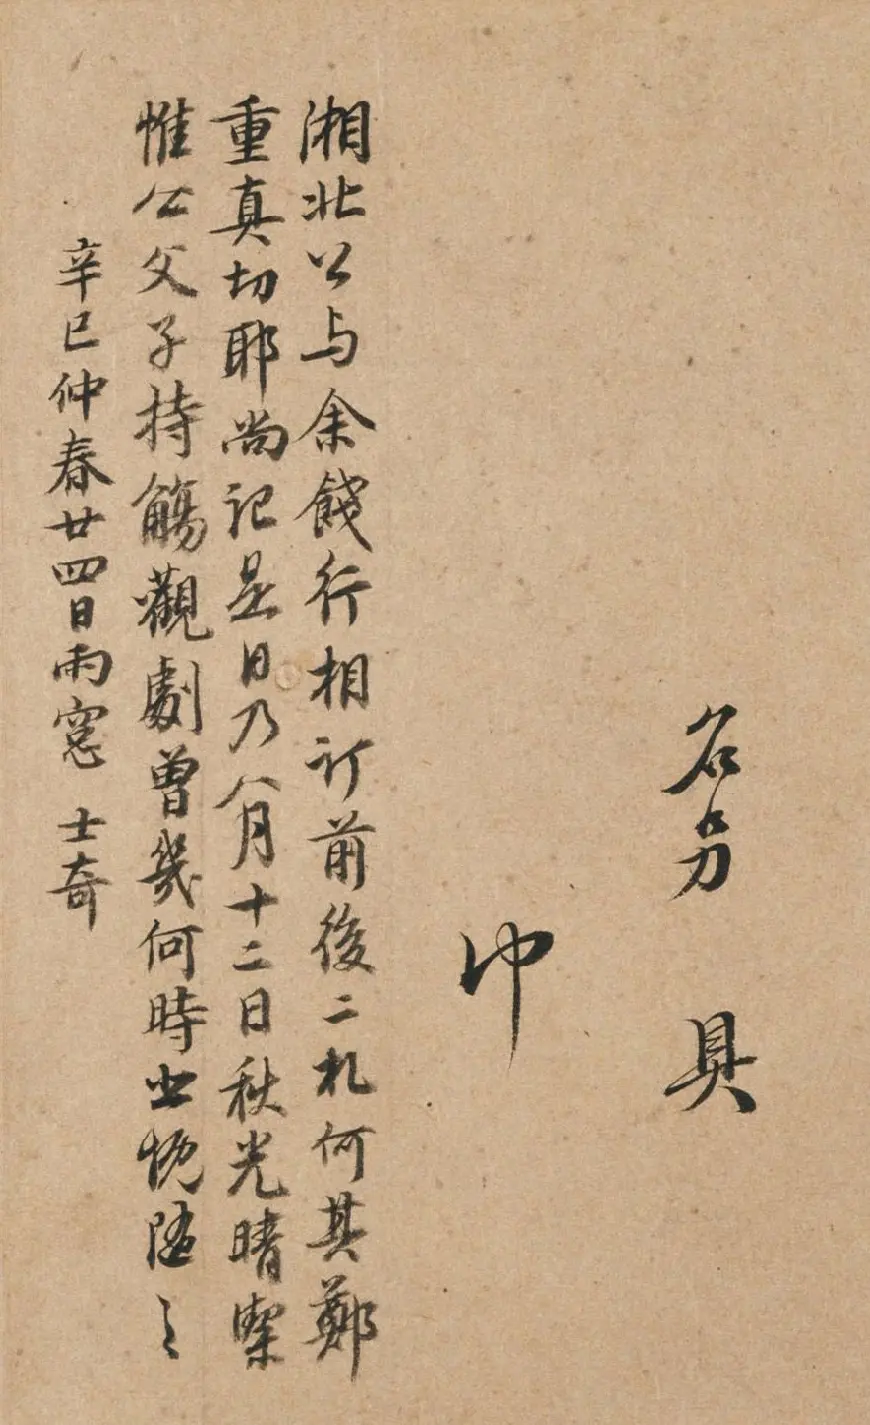 名另 具
湘北公与余餞行相订前後二札何其鄭
重真切耶尚记是日乃八月十二日秋光晴
惟公父子持觴觀劇曾幾何時
辛巳仲春廿四日雨窓 士奇